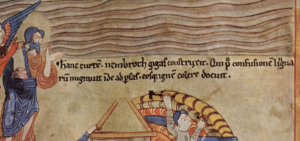 hanc turrem nembroch gigas construxit. Qui post confusionem lingua
rum migravit inde ad psas. eosque ignem colere docuit.